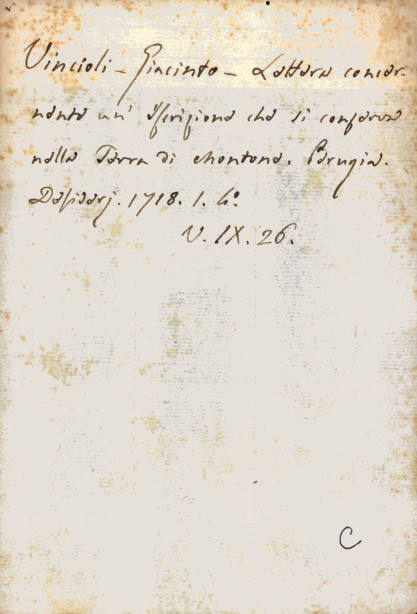 Vincioli - Giacinto - Lettera concer-
nente un' Iscrizione che si conserva
nella Terra di Montone. Perugia.
Desiderj. 1718. 1. 4º
V. IX. 26.
C